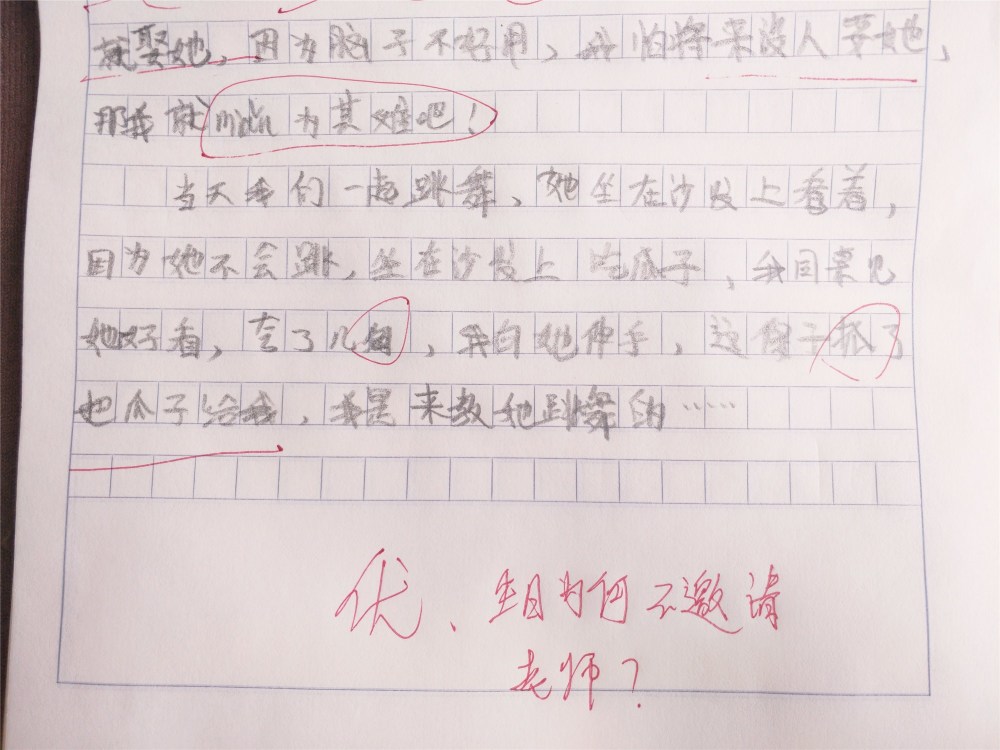 就娶她，因为脑子不好用，我怕将来没人要她，
那我就miǎn为其难吧！
当天我们一起跳舞，她坐在沙发上看着，
因为她不会跳，坐在沙发上吃瓜子，我回来见
她好看，去了几，我向她伸手，这傻子抓了
把瓜子给我，我是来教她跳舞的……
优、生日为何不邀请
老师？